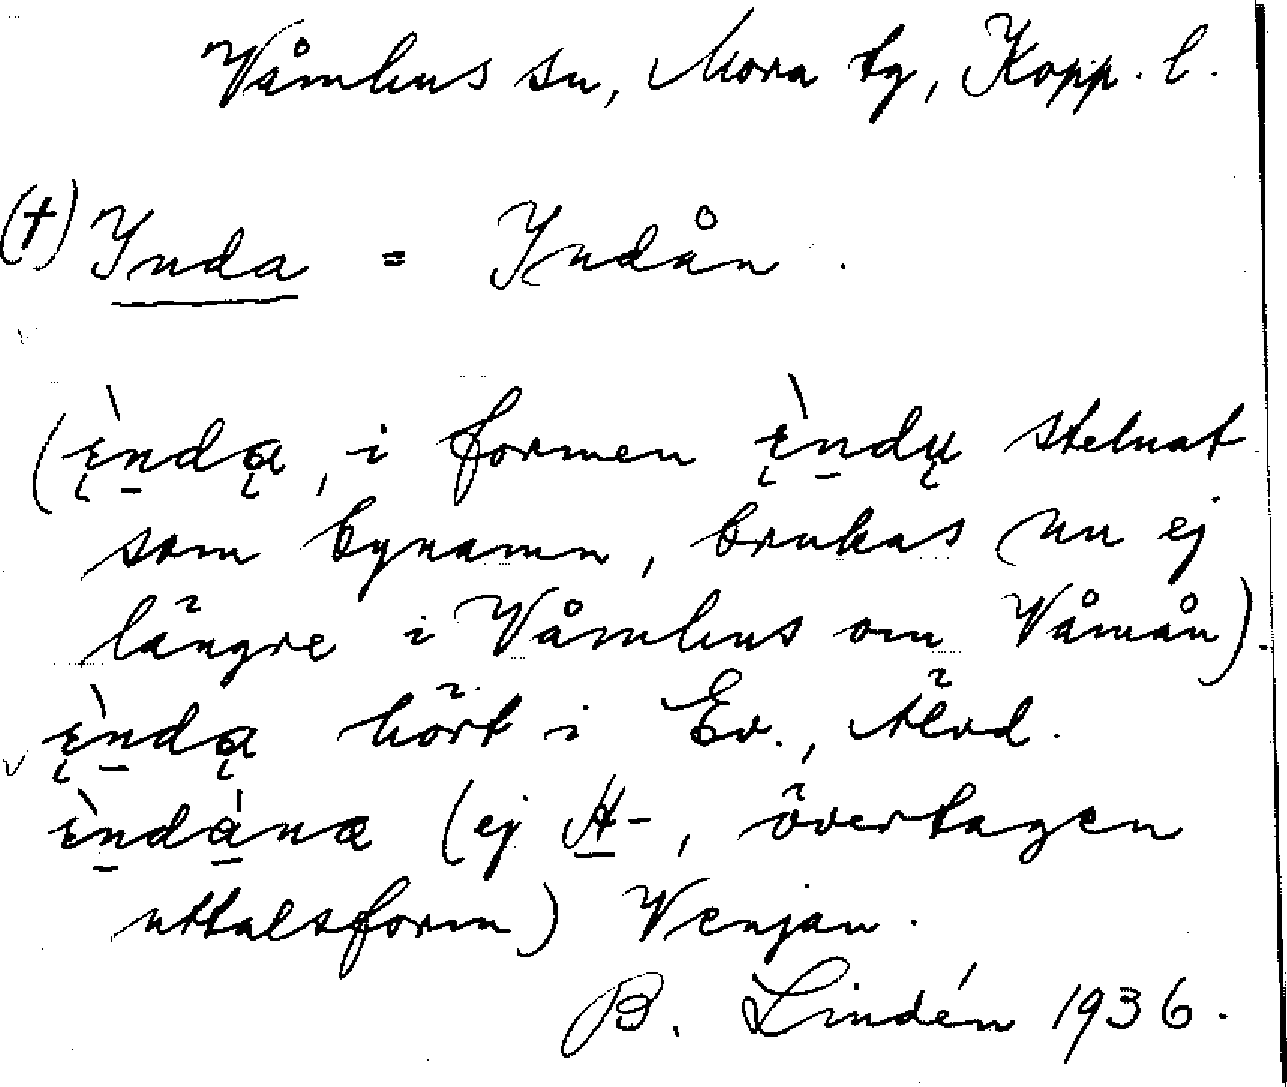 Våmhus sn, Mora tg, Kopp. l.
(†) Inda = Indån.
(ę̀n̲dą, i formen ę̀n̲dų stelnat
som bynamn, brukas nu ej
längre i Våmhus om Våmån).
ę̀n̲dą hört i Ev., Älvd.
ɛ̀n̲dá̲næ (ej H̲-, övertagen
uttalsform) Venjan.
B. Lindén 1936.